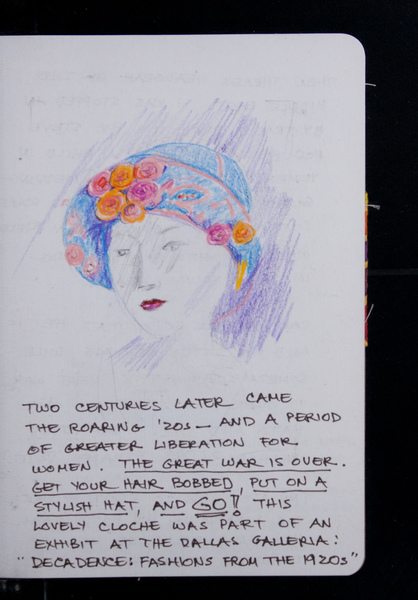 TWO CENTURIES LATER CAME
THE ROARING '20s — AND A PERIOD
OF GREATER LIBERATION FOR
WOMEN. THE GREAT WAR IS OVER.
GET YOUR HAIR BOBBED, PUT ON A
STYLISH HAT, AND GO!! THIS
LOVELY CLOCHE WAS PART OF AN
EXHIBIT AT THE DALLAS GALLERIA:
"DECADENCE: FASHIONS FROM THE 1920s"